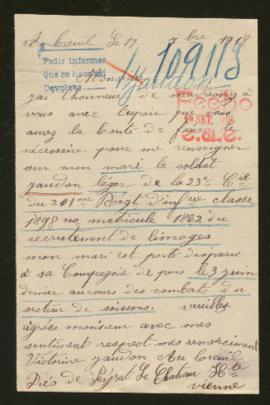 Au breuil le 17 7bre 1918
109113
Pedir informes
Que se ha
Devolver
Monsieur
Fecho
jai lhonneur de
vous avec lespoir que vous
aurez la bonté de faire
nécessaire pour me renseigner
sur mon mari le soldat
yaudon léger de la 23e Cie
du 201me Regt d'infrie classe
1898 no matricule 1862 du
recrutement de limoges
mon mari est porté disparu
a sa Compagnie depuis le 3 juin
dernier au cours des combats du
secteur de soissons. veuillez
agrés monsieur avec mes
sentiment respect mes remerciment
Victorine yaudon Au breuil
Près de Le Chateau Hte
vienne